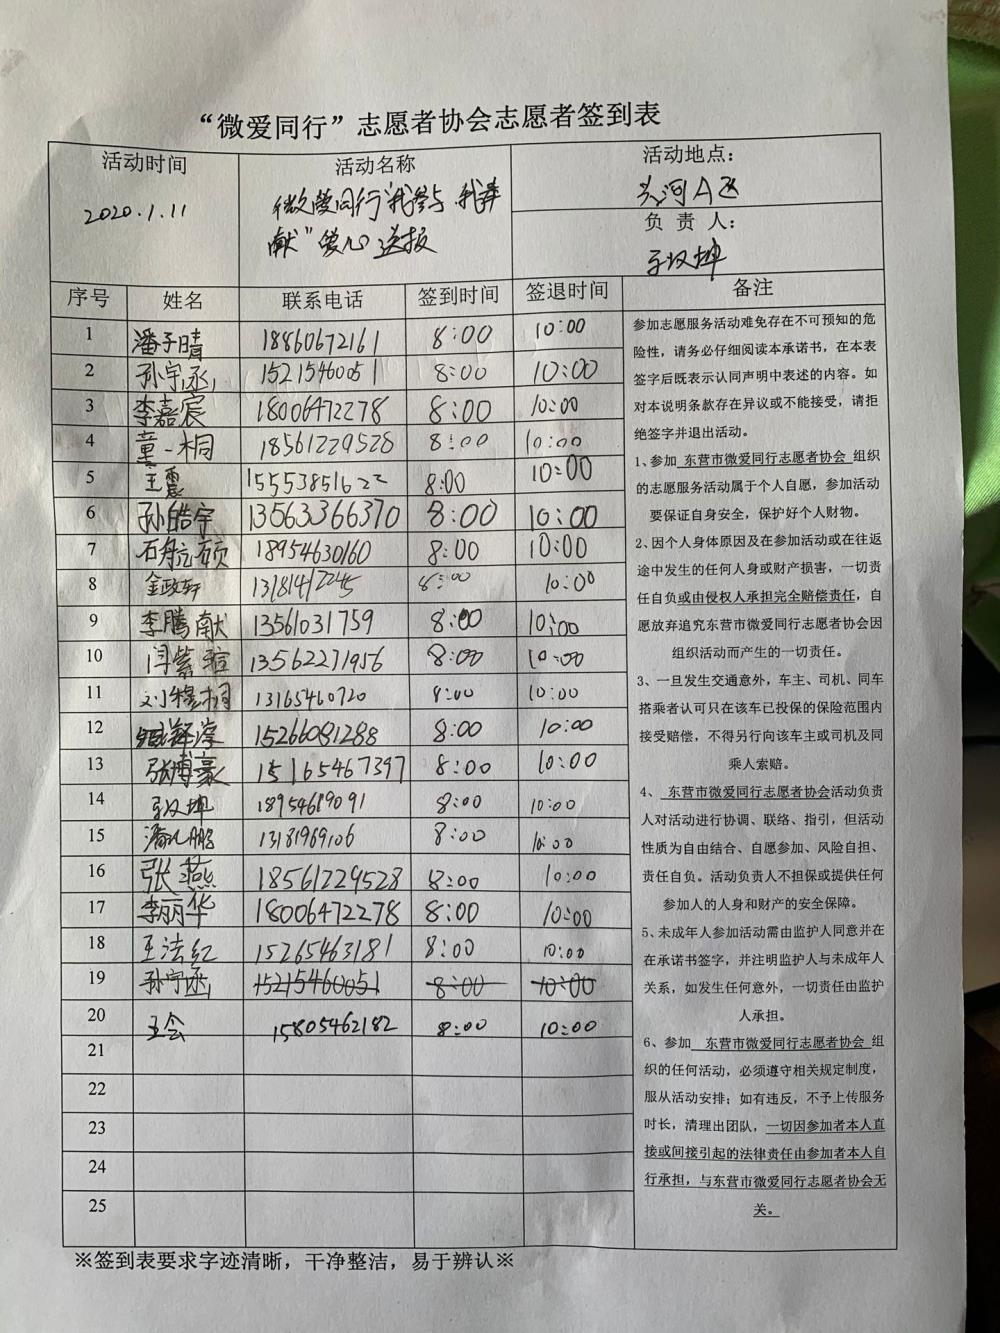 “微爱同行”志愿者协会志愿者签到表
活动时间
2020.1.11
活动名称
微爱同行"我参与.我奉
献"爱心送报
活动地点：
负 责 人：
序号 姓名 联系电话 签到时间 签退时间 备注
1 潘子晴 18860672161 8:00 10:00
2 孙宇丞 15215460051 8:00 10:00
3 李嘉宸 18006472278 8:00 10:00
4 童一桐 18561229528 8:00 10:00
5 王震 15553851622 8:00 10:00
6 孙皓宇 13563366370 8:00 10:00
7 石航硕 18954630160 8:00 10:00
8 金政轩 8:00 10:00
9 李腾献 13561031759 8:00 10:00
10 闫紫瑄 13562271956 8:00 10:00
11 刘穆桐 13165460720 8:00 10:00
12 15266081288 8:00 10:00
13 张博豪 15165467397 8:00 10:00
14 8:00 10:00
15 13181969106 8:00 10:00
16 张燕 18561229528 8:00 10:00
17 李丽华 18006472278 8:00 10:00
18 王法红 15265463181 8:00 10:00
19 孙宇丞 15215460051 8:00 10:00
20 王会 15805462182 8:00 10:00
21
22
23
24
25
参加志愿服务活动难免存在不可预知的危
险性，请务必仔细阅读本承诺书，在本表
签字后既表示认同声明中表述的内容。如
对本说明条款存在异议或不能接受，请拒
绝签字并退出活动。
1、参加 东营市微爱同行志愿者协会 组织
的志愿服务活动属于个人自愿，参加活动
要保证自身安全，保护好个人财物。
2、因个人身体原因及在参加活动或在往返
途中发生的任何人身或财产损害，一切责
任自负或由侵权人承担完全赔偿责任，自
愿放弃追究东营市微爱同行志愿者协会因
组织活动而产生的一切责任。
3、一旦发生交通意外，车主、司机、同车
搭乘者认可只在该车已投保的保险范围内
接受赔偿，不得另行向该车主或司机及同
乘人索赔。
4、 东营市微爱同行志愿者协会活动负责
人对活动进行协调、联络、指引，但活动
性质为自由结合、自愿参加、风险自担、
责任自负。活动负责人不担保或提供任何
参加人的人身和财产的安全保障。
5、未成年人参加活动需由监护人同意并在
在承诺书签字，并注明监护人与未成年人
关系，如发生任何意外，一切责任由监护
人承担。
6、参加 东营市微爱同行志愿者协会 组
织的任何活动，必须遵守相关规定制度，
服从活动安排；如有违反，不予上传服务
时长，清理出团队，一切因参加者本人直
接或间接引起的法律责任由参加者本人自
行承担，与东营市微爱同行志愿者协会无
关。
※签到表要求字迹清晰，干净整洁，易于辨认※